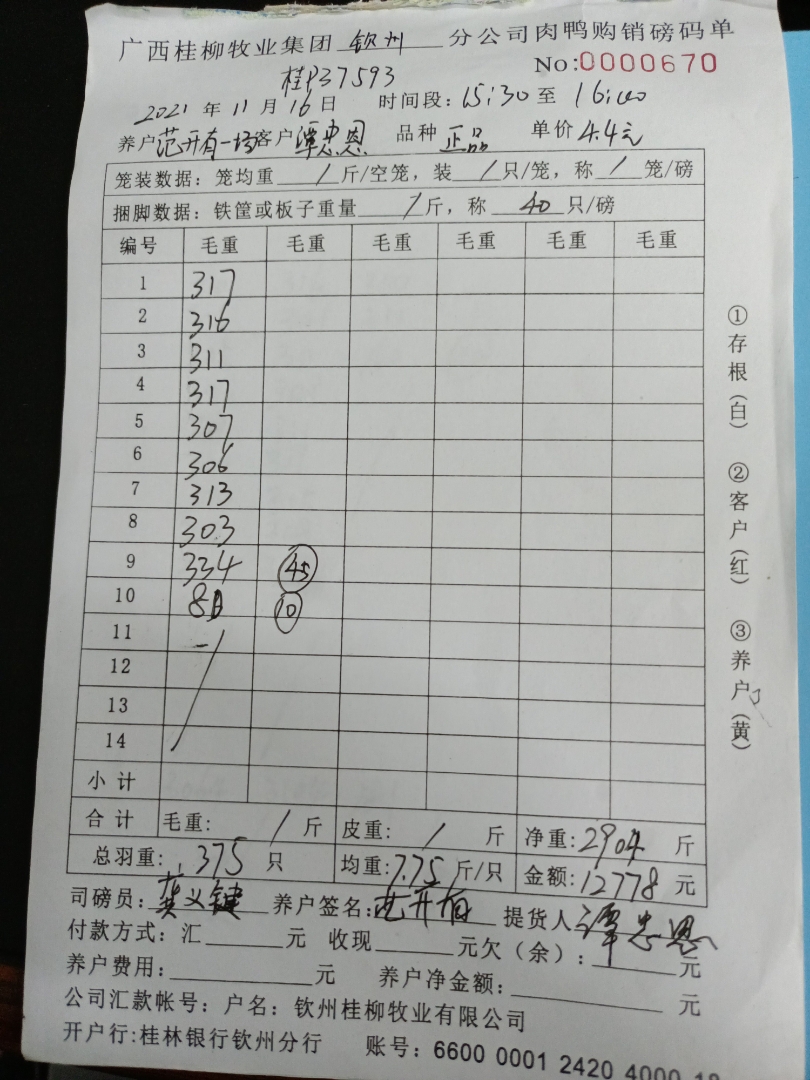 广西桂柳牧业集团 钦州 分公司肉鸭购销磅码单
桂P37593 No:0000670
2021年11月16日 时间段:15:30至16:00
养户范开有一场客户谭忠恩 品种正品 单价4.4元
笼装数据:笼均重/斤/空笼,装/只/笼,称/笼/磅
捆脚数据:铁筐或板子重量/斤,称40只/磅
编号 毛重 毛重 毛重 毛重 毛重 毛重
1 317
2 316
3 311
4 317
5 307
6 306
7 313
8 303
9 334 45
10 10
11
12
13
14
小计
合计 毛重: / 斤 皮重: / 斤 净重:2904斤
总羽重:375只 均重:7.75斤/只 金额:12778元
司磅员:龚义键 养户签名:范开有 提货人谭忠恩
付款方式:汇____元 收现____元欠(余):____元
养户费用:____元 养户净金额:____元
公司汇款帐号:户名:钦州桂柳牧业有限公司
开户行:桂林银行钦州分行 账号:6600 0001 2420 4000
①存根(白) ②客户(红) ③养户(黄)